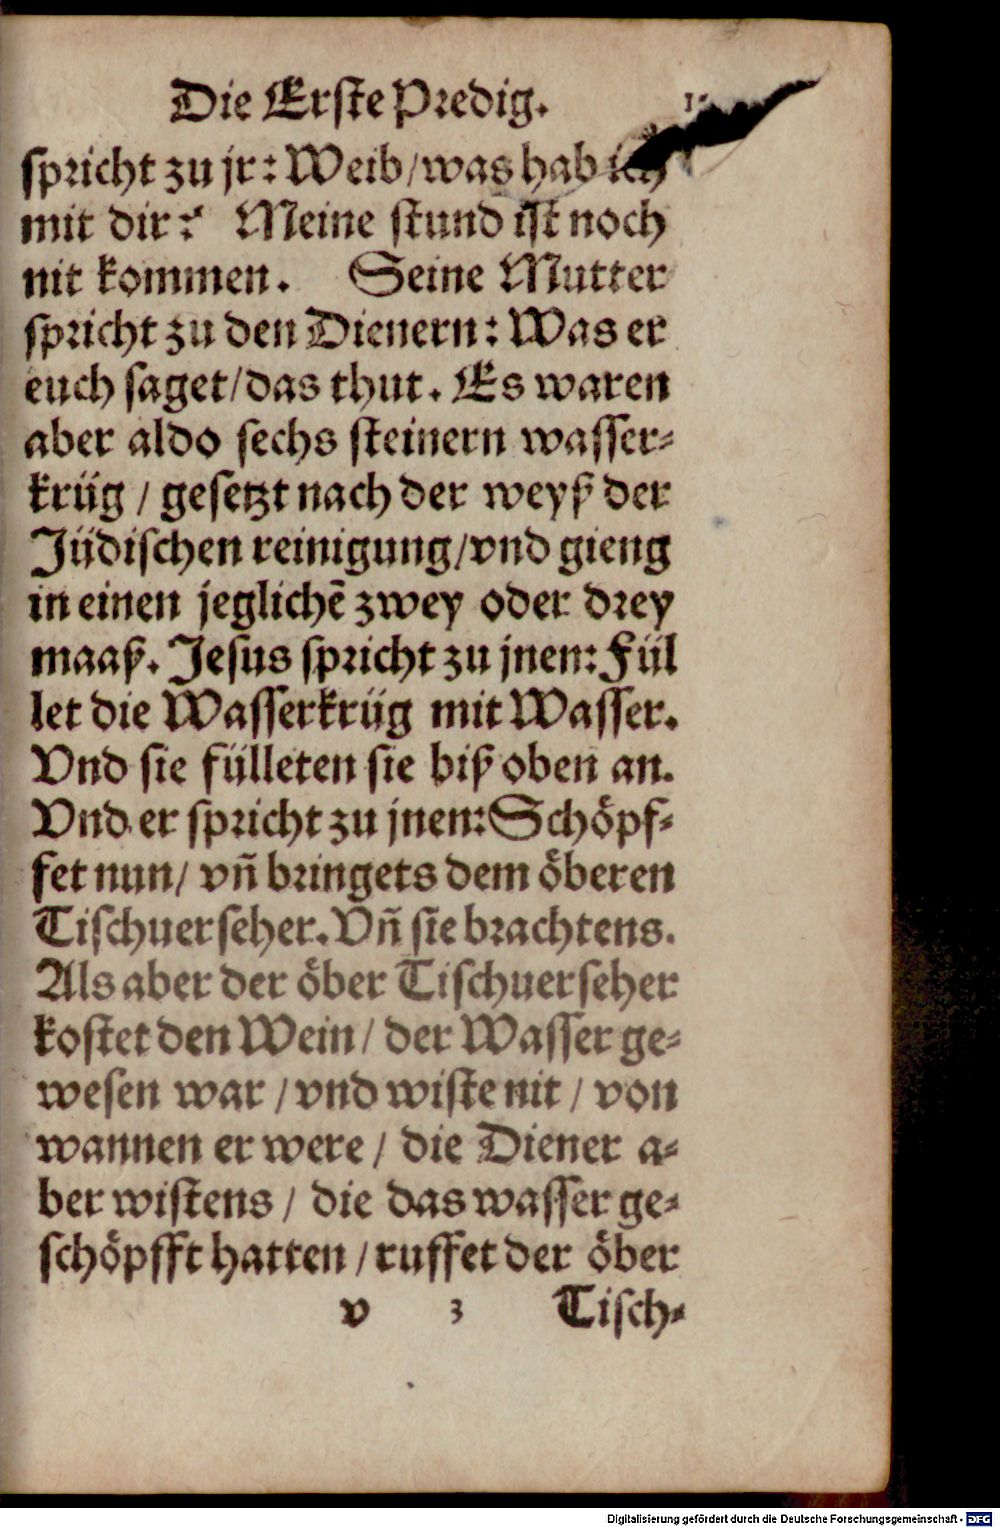 Die Erste Predig.
spricht zu jr: Weib/ was hab ich
mit dir? Meine stund ist noch
nit kommen. Seine Mutter
spricht zu den Dienern: Was er
euch saget/ das thut. Es waren
aber aldo sechs steinern wasser-
krüg / gesetzt nach der weyß der
Jüdischen reinigung/ vnd gieng
in einen jeglichē zwey oder drey
maaß. Jesus spricht zu jnen: Fül
let die Wasserkrüg mit Wasser.
Vnd sie fülleten sie biß oben an.
Vnd er spricht zu jnen: Schöpf-
fet nun/ vñ bringets dem öberen
Tischuerseher. Vñ sie brachtens.
Als aber der öber Tischuerseher
kostet den Wein/ der Wasser ge-
wesen war / vnd wiste nit / von
wannen er were / die Diener a-
ber wistens / die das wasser ge-
schöpfft hatten / ruffet der öber
v 3 Tisch-
Digitalisierung gefördert durch die Deutsche Forschungsgemeinschaft - DFG